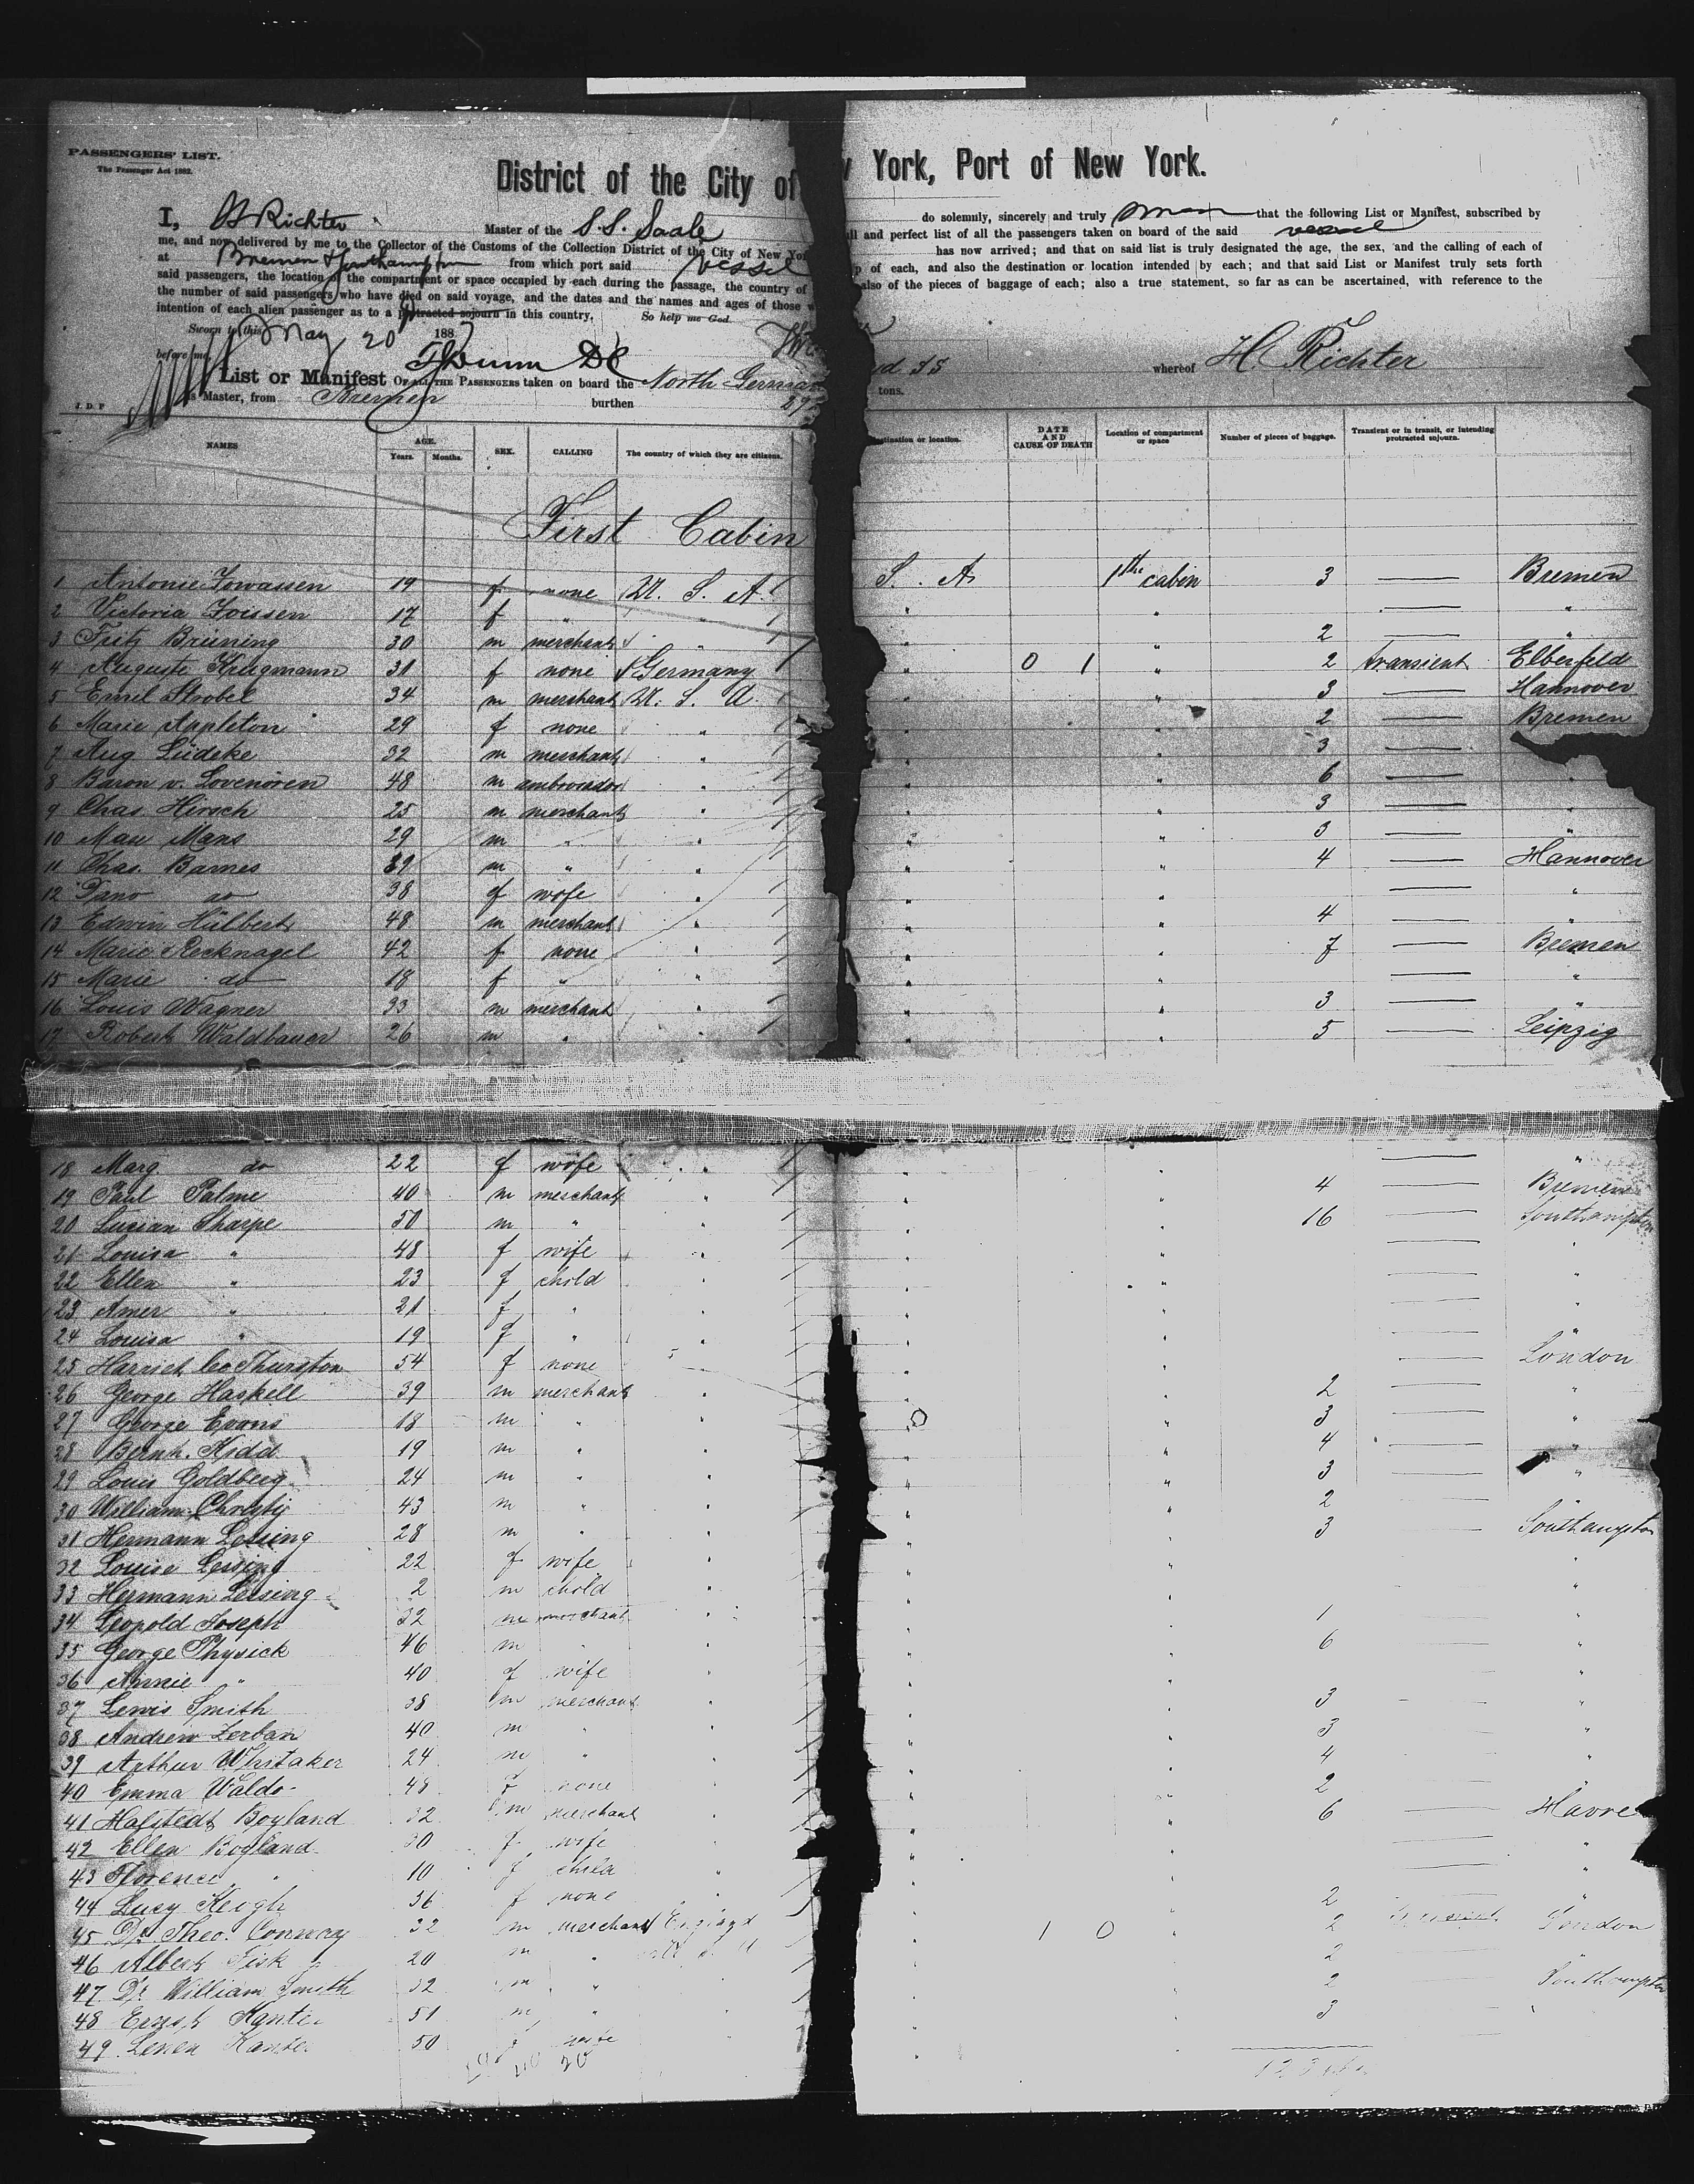 PASSENGERS' LIST.
The Passenger Act 1882.
District of the City of York, Port of New York.
I, H Richter Master of the S.S. Saale do solemnly, sincerely and truly swear that the following List or Manifest, subscribed by
me, and now delivered by me to the Collector of the Customs of the Collection District of the City of New Yor all and perfect list of all the passengers taken on board of the said vessel
at Bremen & Southampton from which port said vessel has now arrived; and that on said list is truly designated the age, the sex, and the calling of each of
said passengers, the location of the compartment or space occupied by each during the passage, the country of of each, and also the destination or location intended by each; and that said List or Manifest truly sets forth
the number of said passengers who have died on said voyage, and the dates and the names and ages of those also of the pieces of baggage of each; also a true statement, so far as can be ascertained, with reference to the
intention of each alien passenger as to a protracted sojourn in this country. So help me God
Sworn to this May 20 188
before me
List or Manifest OF ALL THE PASSENGERS taken on board the North German SS whereof H. Richter
is Master, from Bremen burthen tons.
J. D. P
NAMES AGE. Years. Months. SEX. CALLING The country of which they are citizens. destination or location. DATE AND CAUSE OF DEATH Location of compartment or space Number of pieces of baggage. Transient or in transit, or intending protracted sojourn.
First Cabin
1 Antonie 19 f none U. S. A. S. A 1th cabin 3 — Bremen
2 Victoria 17 f " " " " — "
3 Fritz Brüning 30 m merchant " " " 2 — "
4 Auguste Krugmann 31 f none Germany " 0 1 " 2 transient Elberfeld
5 Emil Strobel 34 m merchant U. S. A. " " 3 — Hannover
6 Marie Appleton 29 f none " " " 2 — Bremen
7 Aug Lüdeke 32 m merchant " " " 3 —
8 Baron v. Lovenören 48 m ambassador " " " 6 — "
9 Chas. Hirsch 25 m merchant " " " 3 — "
10 Max Mans 29 m " " " " 3 — "
11 Chas. Barnes 39 m " " " " 4 — Hannover
12 do 38 f wife " " " — "
13 Edwin Hülbert 48 m merchant " " " 4 — "
14 Marie Recknagel 42 f none " " " 7 — Bremen
15 Marie do 18 f " " " " — "
16 Louis Wagner 33 m merchant " " " 3 — "
17 Robert Waldbauer 26 m " " " " 5 — Leipzig
18 Marg do 22 f wife " " " — "
19 Paul Palme 40 m merchant " " " 4 — Bremen
20 Lucian Sharpe 50 m " " " " 16 — Southampton
21 Louisa " 48 f wife " " " — "
22 Ellen " 23 f child " " " — "
23 Amer " 21 f " " " " — "
24 Louisa " 19 f " " " " — "
25 Harriet Thurston 54 f none " " " — London
26 George Haskell 39 m merchant " " " 2 — "
27 George Evans 18 m " " " " 3 — "
28 Bernh. Kidd 19 m " " " " 4 — "
29 Louis Goldberg 24 m " " " " 3 — "
30 William Christy 43 m " " " " 2 — "
31 Hermann Lessing 28 m " " " " 3 — Southampton
32 Louise Lessing 22 f wife " " " "
33 Hermann Lessing 2 m child " " " "
34 Leopold Joseph 32 m merchant " " " 1 — "
35 George Physick 46 m " " " " 6 — "
36 Annie " 40 f wife " " " "
37 Lewis Smith 38 m merchant " " " 3 — "
38 Andrew Zerban 40 m " " " " 3 — "
39 Arthur Whitaker 24 m " " " " 4 — "
40 Emma Waldo 48 f none " " " 2 — "
41 Halstedt Boyland 32 m merchant " " " 6 — Havre
42 Ellen Boyland 30 f wife " " " — "
43 Florence " 10 f child " " " — "
44 Lucy Keogh 36 f none " " " 2 — "
45 Dr. Theo. Conway 32 m merchant England " 1 0 " 2 transient London
46 Albert Fisk 20 m " " " 2 — "
47 Dr William Smith 32 m " " " " 2 — Southampton
48 Ernst Kanter 51 m " " " " 3 — "
49 Lenea Kanter 50 f wife " "
20